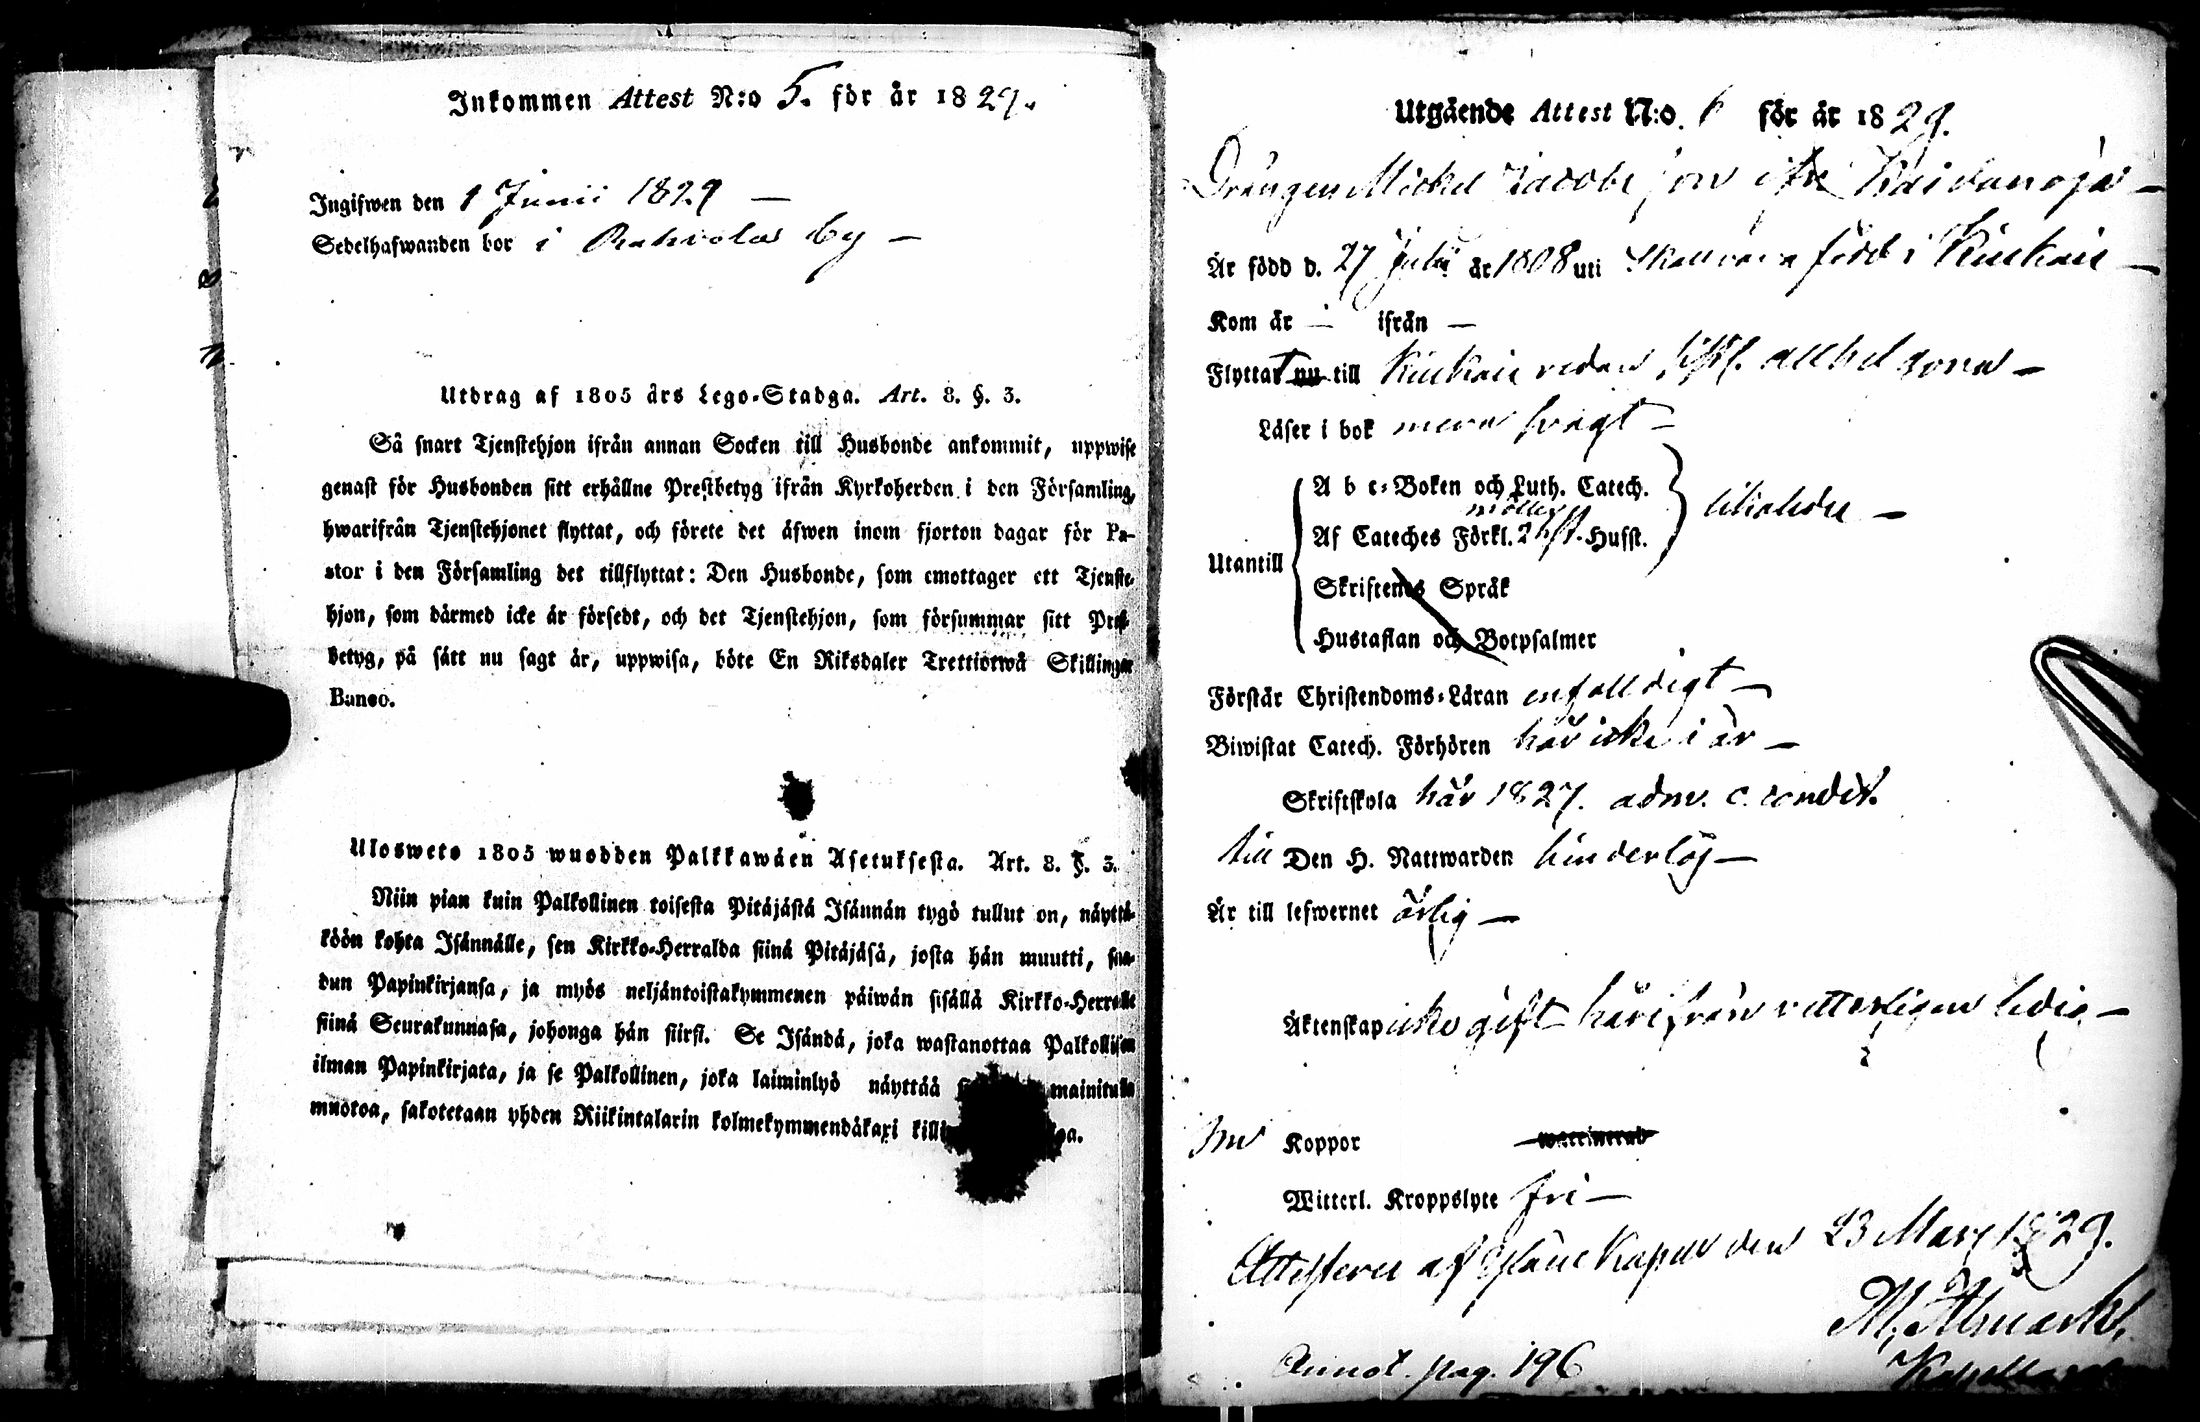 Inkommen Attest N:o 5. för år 1829.
Ingifwen den 1 Junii 1829 —
Sedelhafwanden bor i by —
Utdrag af 1805 års Lego-Stadga. Art. 8. §. 3.
Så snart Tjenstehjon ifrån annan Socken till Husbonde ankommit, uppwise
genast för Husbonden sitt erhållne Prestbetyg ifrån Kyrkoherden i den Församling,
hwarifrån Tjenstehjonet flyttat, och förete det äfwen inom fjorton dagar för Pa-
stor i den Församling det tillflyttat: Den Husbonde, som emottager ett Tjenste-
hjon, som därmed icke är försedt, och det Tjenstehjon, som försummar sitt Prest-
betyg, på sätt nu sagt är, uppwisa, böte En Riksdaler Trettiotwå Skillingar
Banco.
Ulosweto 1805 wuodden Palkkawäen Asetuksesta. Art. 8. §. 3.
Niin pian kuin Palkollinen toisesta Pitäjästä Isännän tygö tullut on, näyttä-
köön kohta Isännälle, sen Kirkko-Herralda siinä Pitäjäsä, josta hän muutti, saa-
dun Papinkirjansa, ja myös neljäntoistakymmenen päiwän sisällä Kirkko-Herralle
siinä Seurakunnasa, johonga hän siirsi. Se Isändä, joka wastanottaa Palkollisen
ilman Papinkirjata, ja se Palkollinen, joka laiminlyö näyttää mainitulla
muotoa, sakotetaan yhden Riikintalarin kolmekymmendäkaxi
Utgående Attest N:o. 6 för år 1829.
Drängen Michel Jacobsson ifrå Kaidanoja —
Är född d. 27 Julii år 1808 uti Skall vara född i Kiukais —
Kom år — ifrån —
Flyttat nu till Kiukais redan sistl. allhelgona —
Läser i bok svagt —
Utantill
A b c-Boken och Luth. Catech.
Af Cateches Förkl. 2 h/st. Husst.
Skriftenes Språk
Hustaflan och Botpsalmer
Förstår Christendoms-Läran enfalldigt —
Biwistat Catech. Förhören här icke i år —
Skriftskola här 1827. adm. c. condit.
till Den H. Nattwarden hinderlös —
Är till lefwernet ärlig —
Äktenskap icke gift härifrån vitterligen ledig —
Koppor
Witterl. Kroppslyte fri —
Attesteras af Kapell den 23 Mars 1829.
M.
Annot. pag. 196